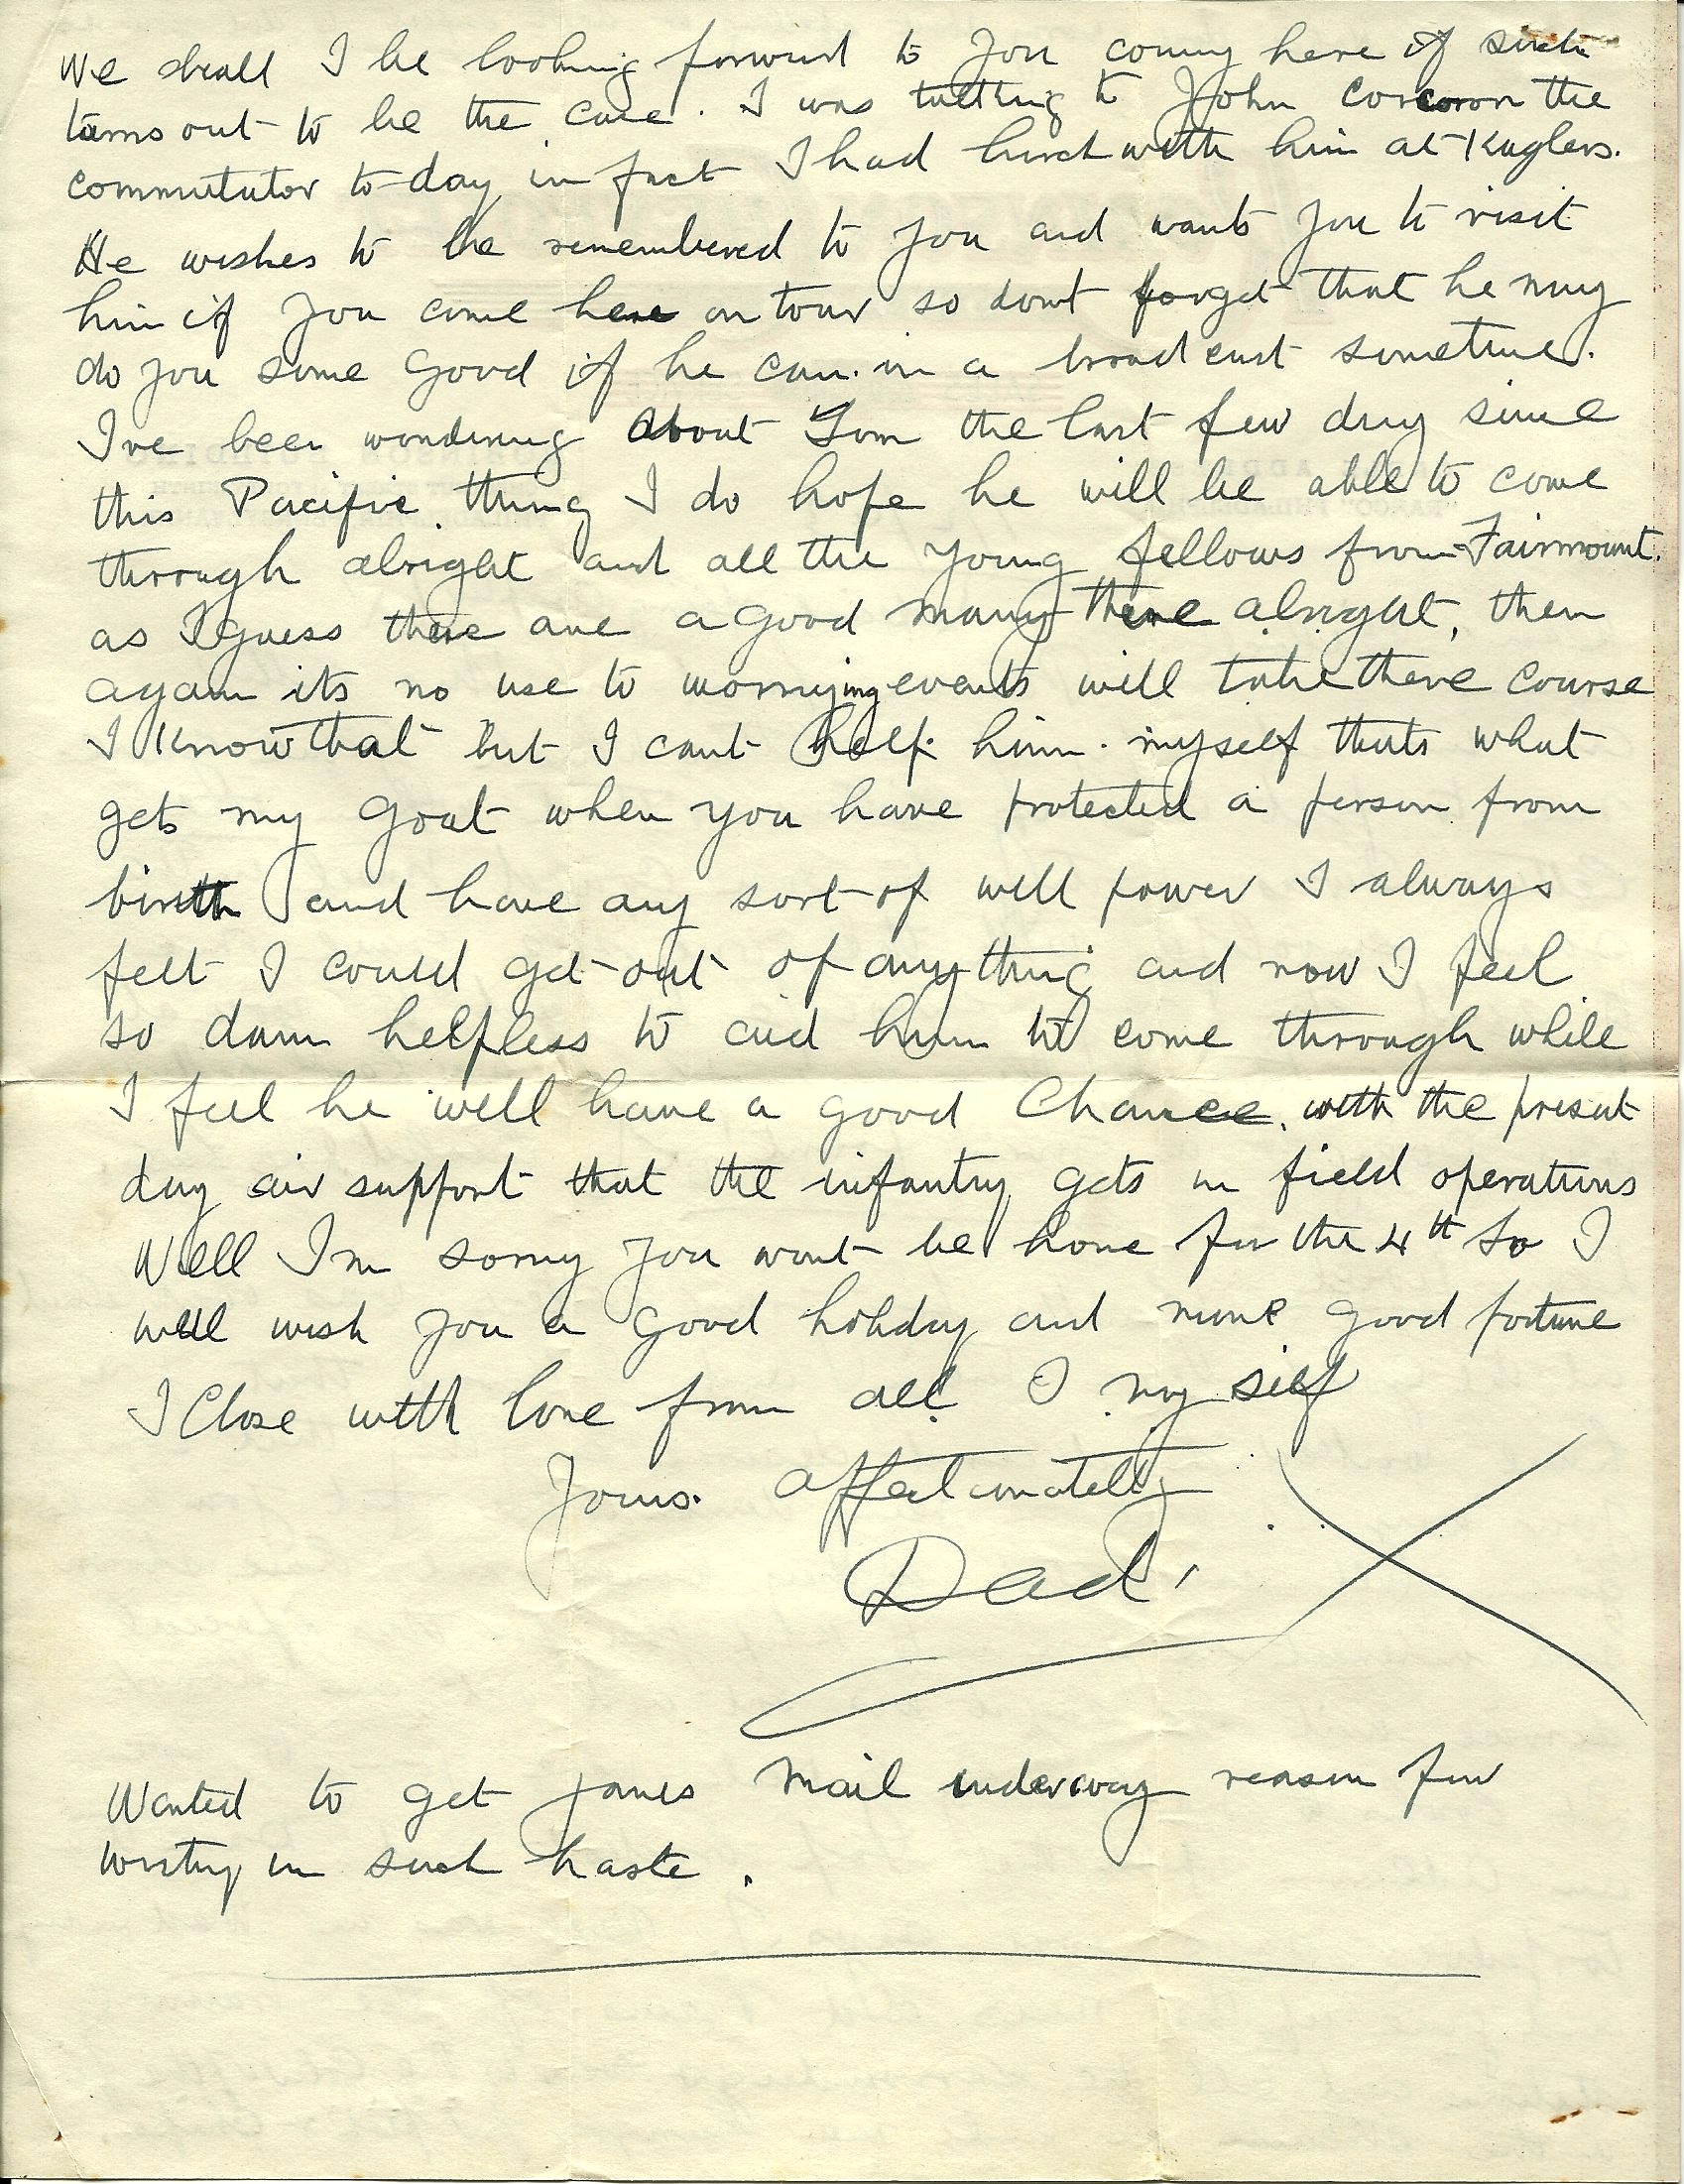 We shall I be looking forward to you coming here if such
turns out to be the case. I was talking to John Corcoran the
commutator to-day in fact I had lunch with him at Kuglers.
He wishes to be remembered to you and wants you to visit
him if you come here on tour so dont forget that he may
do you some good if he can. in a broad cast sometime.
I've been wondering about Tom the last few day since
this Pacific thing I do hope he will be able to come
through alright and all the young fellows from Fairmount.
as I guess there are a good many there alright, then
again its no use to worrying events will take there course
I know that but I cant help him. myself thats what
gets my goat when you have protected a person from
birth and have any sort of will power I always
felt I could get out of anything and now I feel
so damn helpless to aid him to come through while
I feel he will have a good Chance. with the present
day air support that the infantry gets in field operations
Well Im sorry you wont be home for the 4th So I
will wish you a good holiday and more good fortune
I Close with love from all I my self
Yours. affectionately
Dad'
Wanted to get mail underway reason for
writing in such haste.